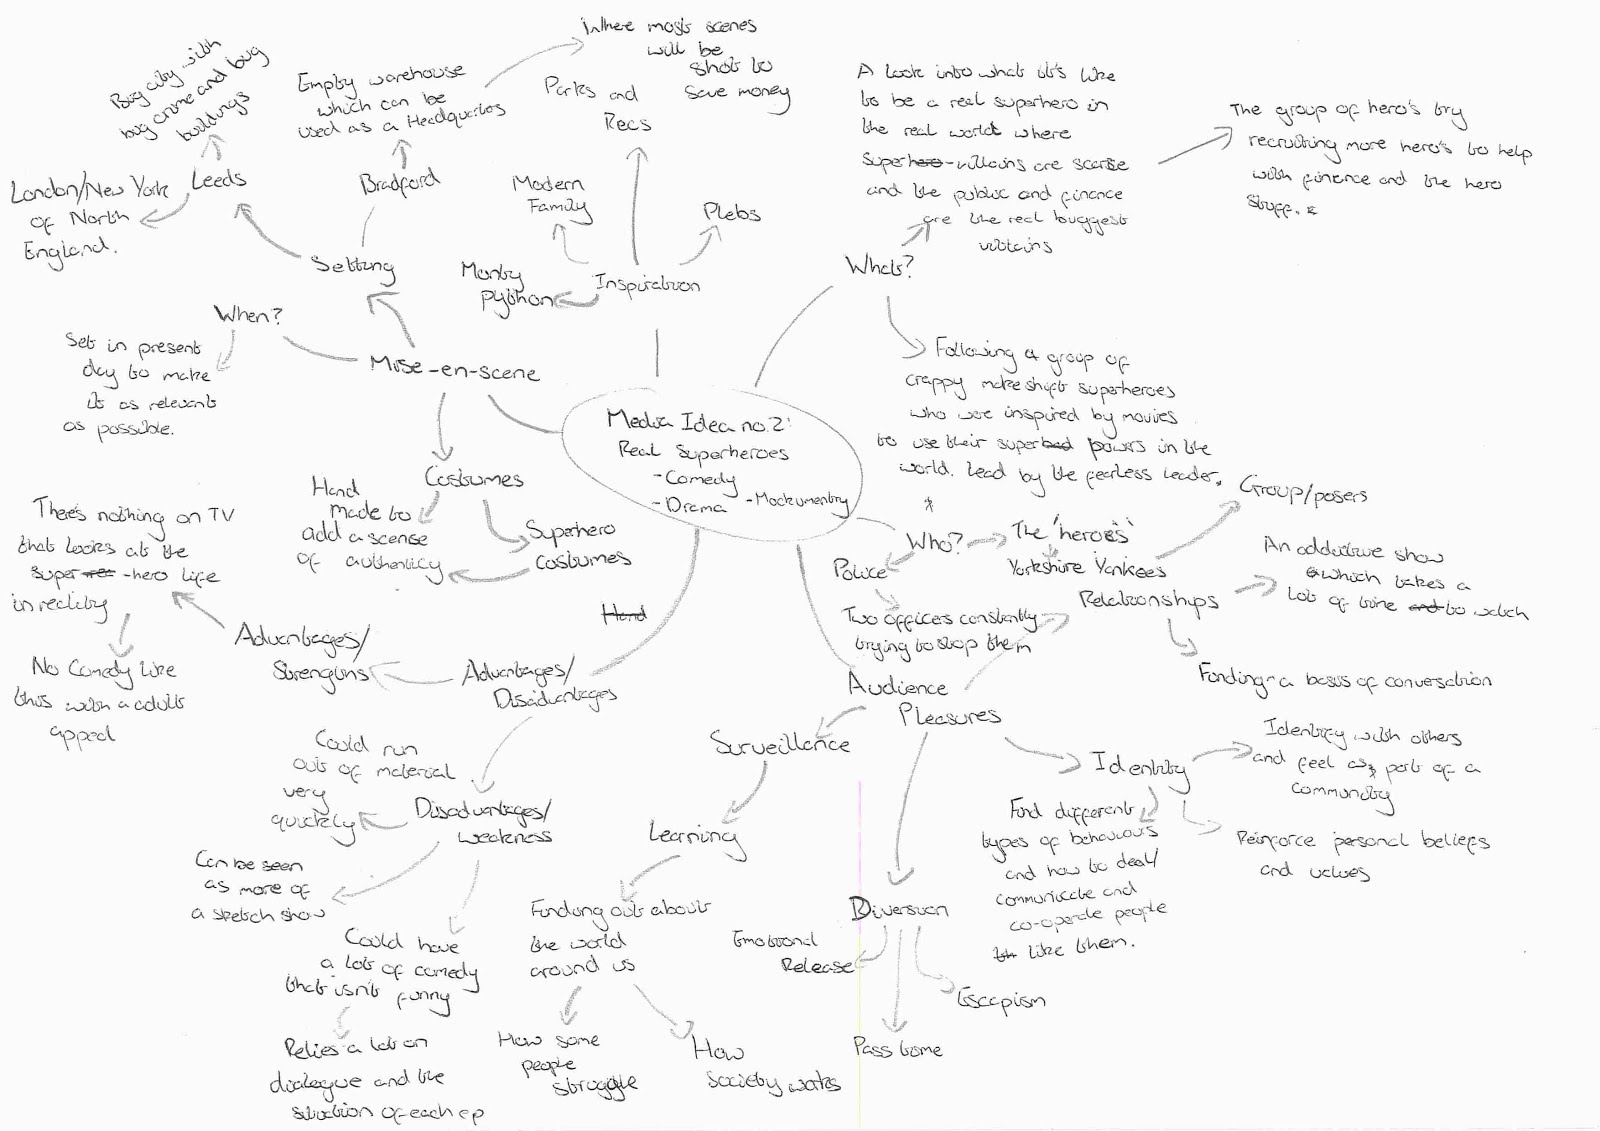 Media Idea no.2:
Real Superheroes
- Comedy
- Drama - Mockumentry
Mise-en-scene
When?
Set in present
day to make
it as relevant
as possible.
Setting
Leeds
Big city with
big crime and big
buildings
London/New York
of North
England.
Bradford
Empty warehouse
which can be
used as a Headquarters
Where most scenes
will be
shot to
save money
Costumes
Hand
made to
add a scense
of authenticy
Superhero
costumes
Inspiration
Monty
python
Modern
Family
Parks and
Recs
Plebs
What?
A look into what it's like
to be a real superhero in
the real world where
Superhero-villains are scarse
and the public and finance
are the real biggest
villains
The group of hero's try
recruiting more hero's to help
with finence and the hero
stuff. *
Following a group of
crappy makeshift superheroes
who were inspired by movies
to use their superbad powers in the
world. Lead by the fearless leader.
*
Who?
The 'heroes'
Yorkshire Yankees
Police
Two offices constantly
trying to stop them
Hand
Advantages/
Disadvantages
Advantages/
Strengths
There's nothing on TV
that looks at the
super -hero life
in reality
No Comedy like
this with a adult
appeal
Disadvantages/
weakness
Could run
out of material
very
quickly
Can be seen
as more of
a sketch show
Could have
a lot of comedy
that isn't funny
Relies a lot on
dialogue and the
situation of each ep
Audience
Pleasures
Surveillance
Learning
Finding out about
the world
around us
How some
people
struggle
How
society works
Diversion
Emotional
Release
Pass time
Escapism
Identity
Identify with others
and feel as part of a
community
Reinforce personal beliefs
and values
Find different
types of behaviours
and how to deal/
communicate and
co-operate people
like them.
Relationships
Group/posers
An addictive show
which takes a
lot of time and to watch
Finding a basis of conversation